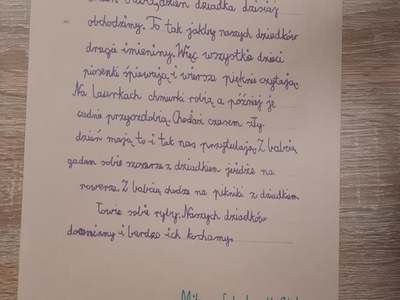 dziadka dzisiaj
obchodzimy. To tak jakby naszych dziadków
druga imieniny. Więc wszystkie dzieci
piosenki śpiewają i wiersze pięknie czytają.
Na laurkach chmurki robią a później je
cudnie przyozdobią. Chodaż czasem zły
dzień mają to i tak nas przytulają. Z babcią
gadam sobie szczerze z dziadkiem jeżdżę na
rowerze. Z babcią chodzę na pikniki z dziadkiem
łowię sobie ryby. Naszych dziadków
doceniamy i bardzo ich kochamy.